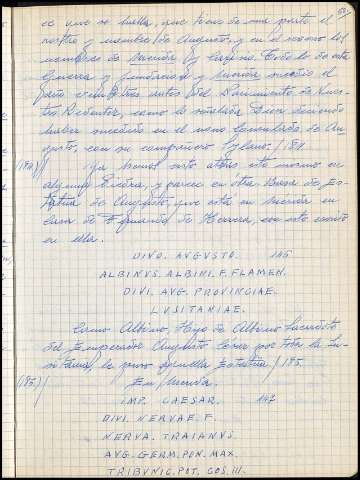 ce que se halla, que tiene de una parte el
rostro y nombre de Augusto, y en el reverso del
nombre de Mérida by Carisio. Todo lo de esta
Guerra y fundacion de Mérida sucedio el
año veintitres antes del Nacimiento de Nues-
tro Redentor, como lo señala Dion diciendo
haber sucedido en el nono Consulado de Au-
gusto, con su compañero Sylano. /184
(184)// Ya hemos visto atras esto mismo en
alguna Piedra, y parece en otra Basa de Es-
tatua de Augusto, que está en Mérida en
casa de Fernando de Herrera, con este escrito
en ella.
DIVO. AVGVSTO.
ALBINVS. ALBINI. F. FLAMEN.
DIVI. AVG. PROVINCIAE.
LVSITANIAE.
Como Albino, Hijo de Albino Sacerdote
del Emperador Augusto Cesar por toda la Lu-
sitania, le puso aquella Estatua. /185.
(185)// En Mérida.
IMP. CAESAR. 147
DIVI. NERVAE. F.
NERVA. TRAIANVS.
AVG. GERM. PON. MAX.
TRIBVNIC. POT. COS. III.